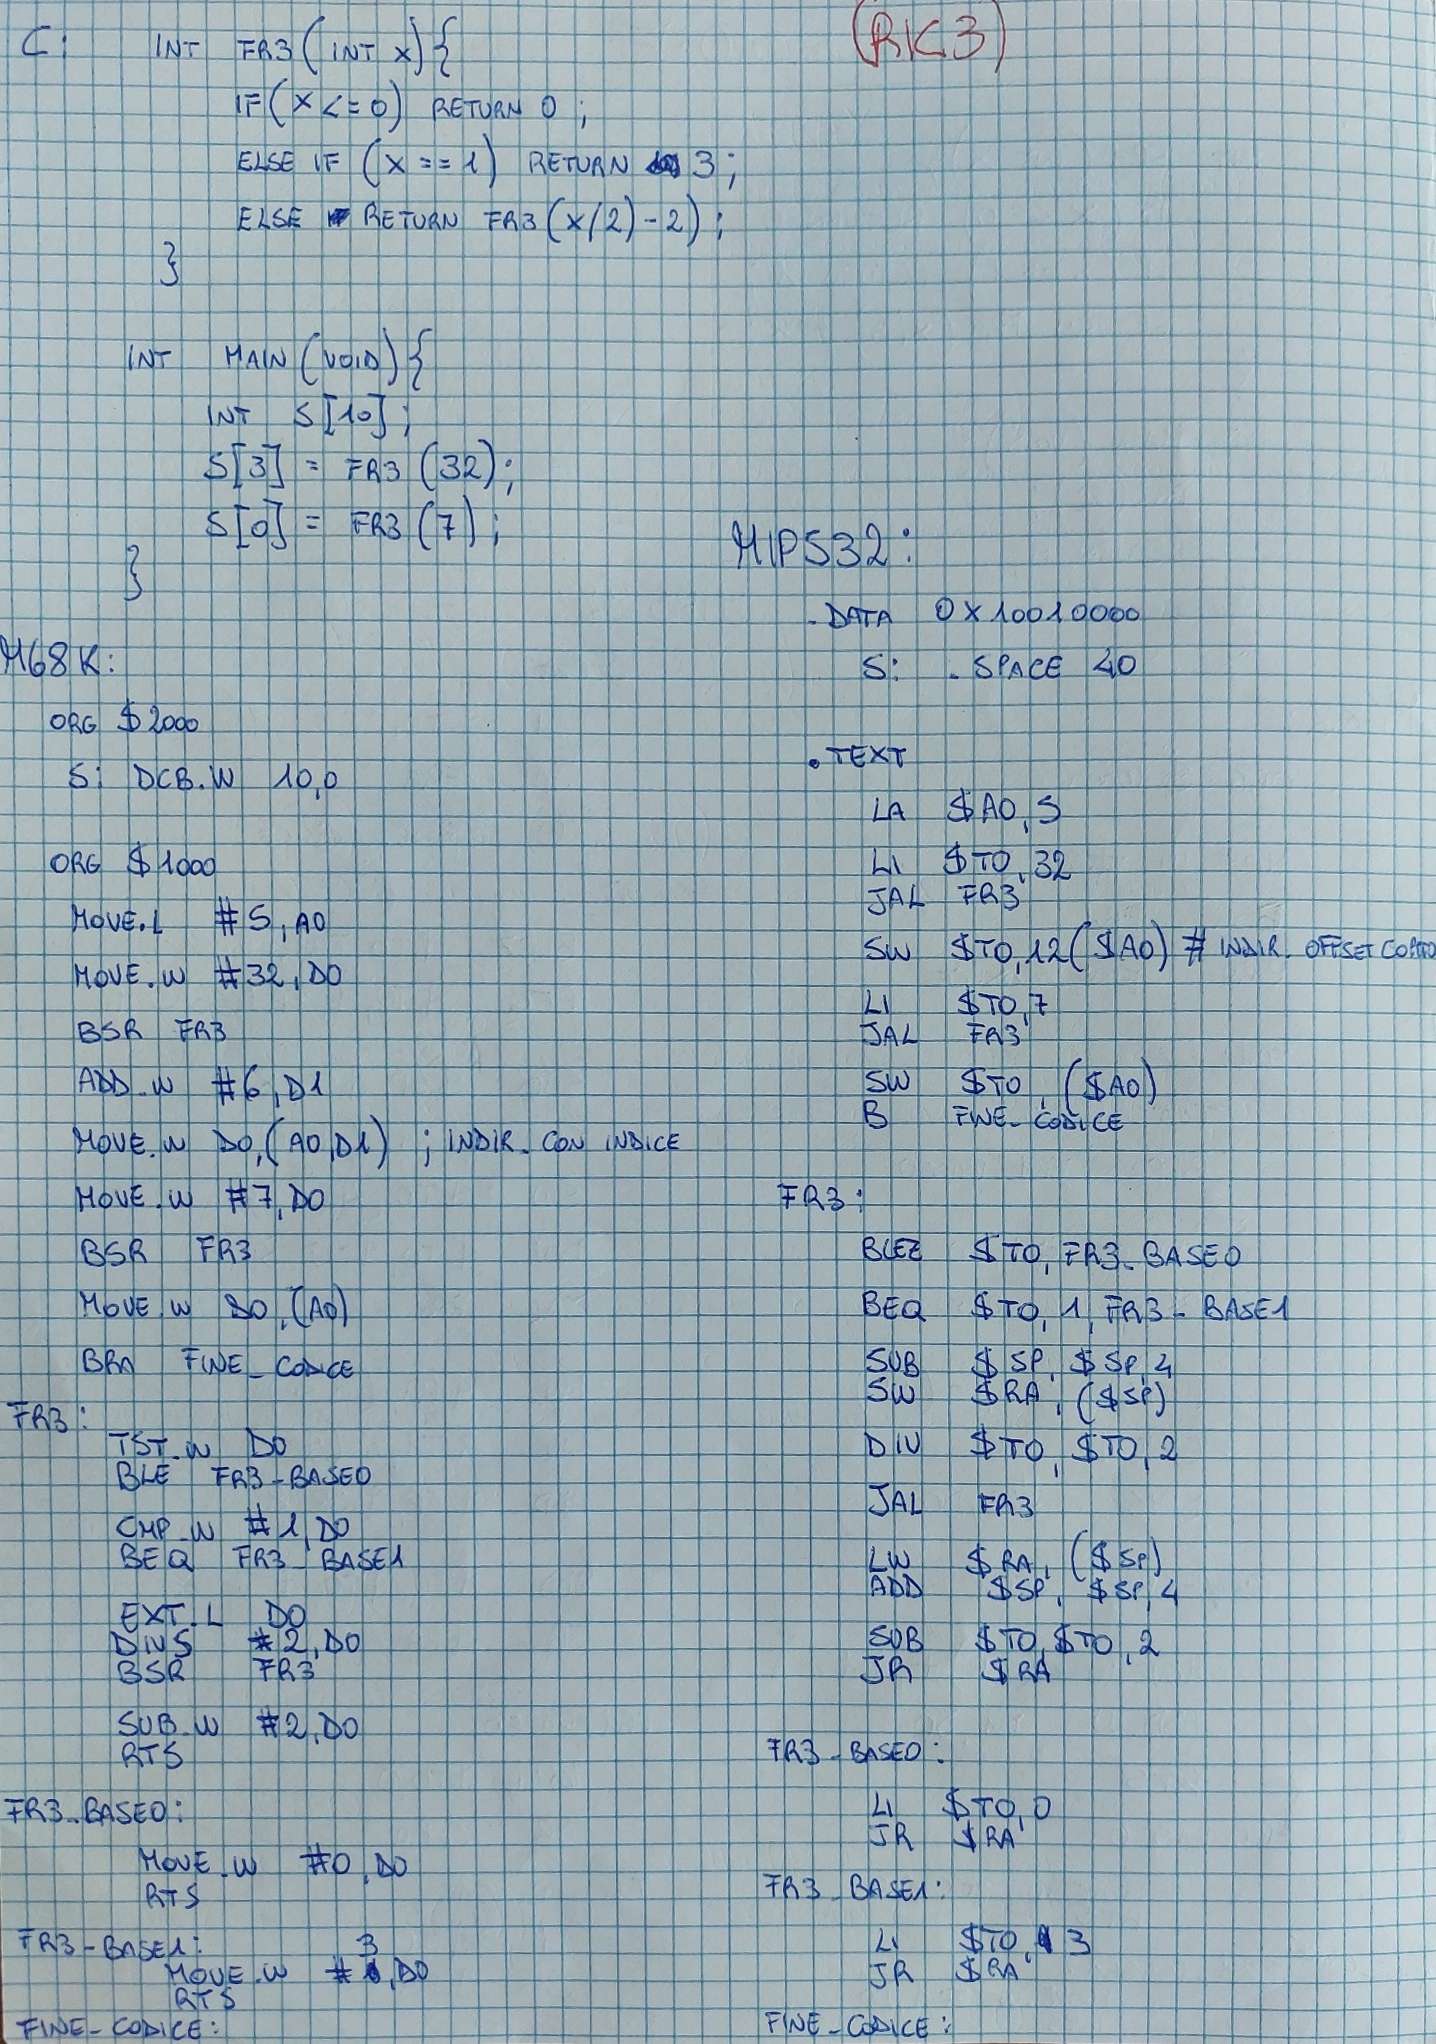 C:
(RK3)
INT FR3(INT X){
IF(X<=0) RETURN 0;
ELSE IF (X==1) RETURN 3;
ELSE RETURN FR3(X/2)-2);
}
INT MAIN(VOID){
INT S[10];
S[3] = FR3(32);
S[0] = FR3(7);
}
M68K:
ORG $2000
S: DCB.W 10,0
ORG $1000
MOVE.L #S,A0
MOVE.W #32,D0
BSR FR3
ADD.W #6,D1
MOVE.W D0,(A0,D1) ; INDIR. CON INDICE
MOVE.W #7,D0
BSR FR3
MOVE.W D0,(A0)
BRA FINE_CODICE
FR3:
TST.W D0
BLE FR3_BASE0
CMP.W #1,D0
BEQ FR3_BASE1
EXT.L D0
DIVS #2,D0
BSR FR3
SUB.W #2,D0
RTS
FR3_BASE0:
MOVE.W #0,D0
RTS
FR3_BASE1:
MOVE.W #3,D0
RTS
FINE_CODICE:
MIPS32:
.DATA 0X10010000
S: .SPACE 40
.TEXT
LA $A0,S
LI $T0,32
JAL FR3
SW $T0,12($A0) # INDIR. OFFSET CORTO
LI $T0,7
JAL FR3
SW $T0,($A0)
B FINE_CODICE
FR3:
BLEZ $T0,FR3_BASE0
BEQ $T0,1,FR3_BASE1
SUB $SP,$SP,4
SW $RA,($SP)
DIV $T0,$T0,2
JAL FR3
LW $RA,($SP)
ADD $SP,$SP,4
SUB $T0,$T0,2
JR $RA
FR3_BASE0:
LI $T0,0
JR $RA
FR3_BASE1:
LI $T0,3
JR $RA
FINE_CODICE: